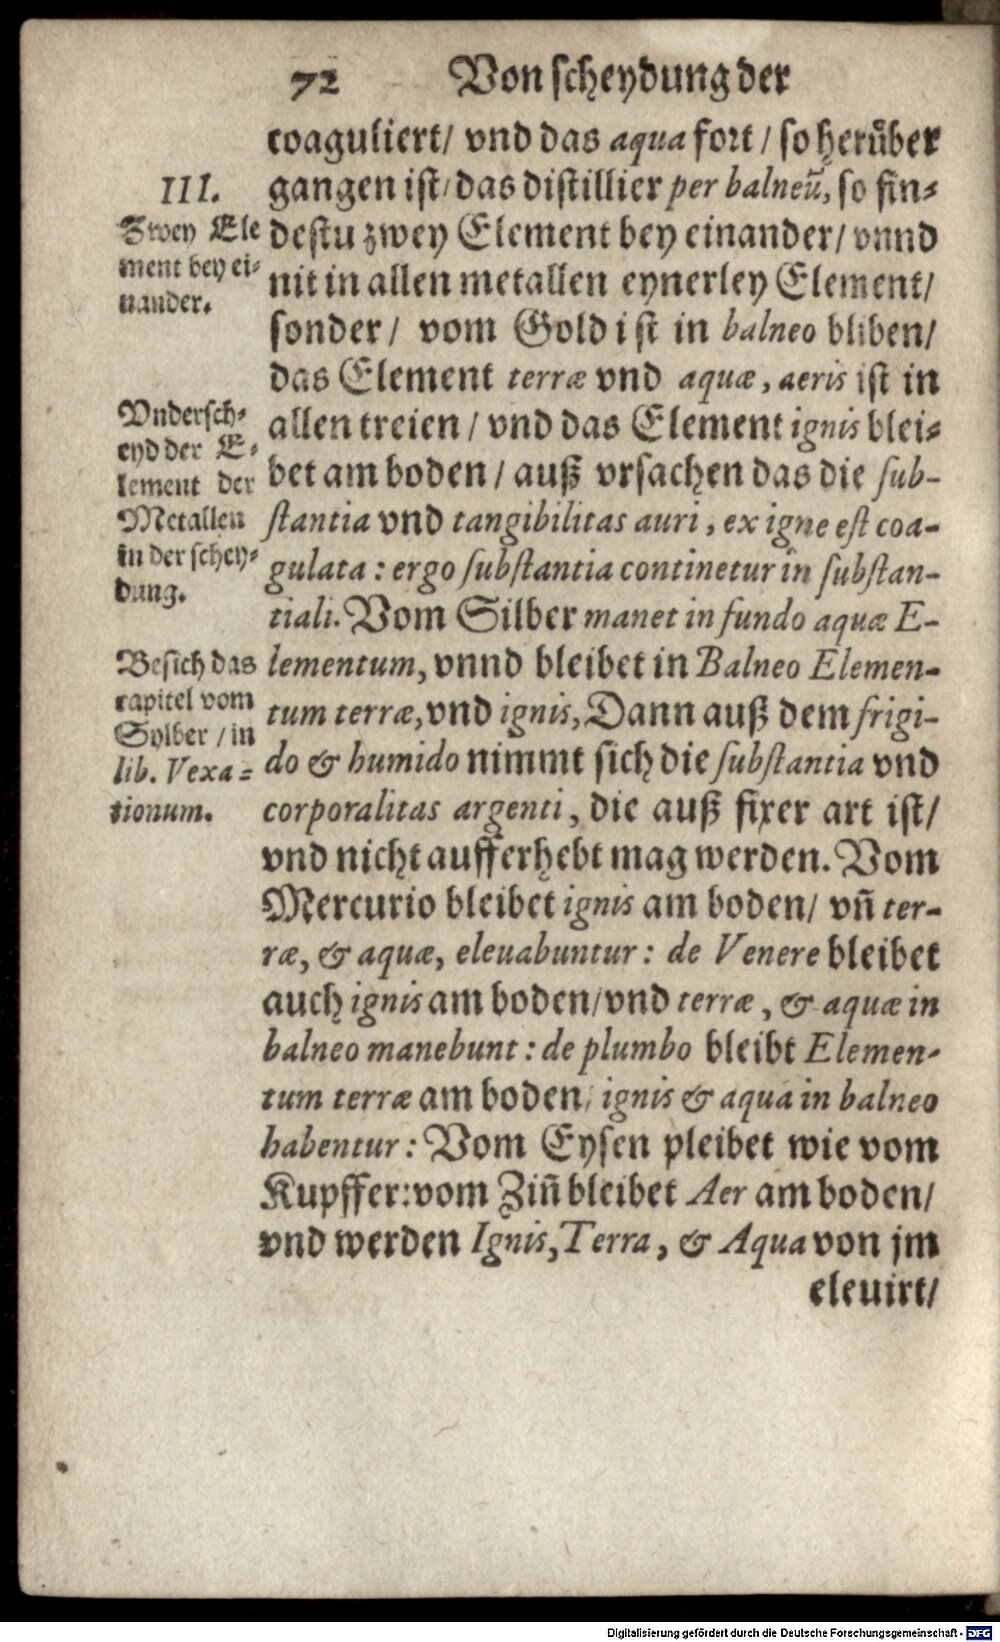 72 Von scheydung der
coaguliert/ vnd das aqua fort/ so herůber
gangen ist/ das distillier per balneū, so fin⸗
destu zwey Element bey einander/ vnnd
nit in allen metallen eynerley Element/
sonder/ vom Gold ist in balneo bliben/
das Element terræ vnd aquæ, aeris ist in
allen treien/ vnd das Element ignis blei⸗
bet am boden/ auß vrsachen das die sub-
stantia vnd tangibilitas auri, ex igne est coa-
gulata: ergo substantia continetur in substan-
tiali. Vom Silber manet in fundo aquæ E-
lementum, vnnd bleibet in Balneo Elemen-
tum terræ, vnd ignis, Dann auß dem frigi-
do & humido nimmt sich die substantia vnd
corporalitas argenti, die auß fixer art ist/
vnd nicht aufferhebt mag werden. Vom
Mercurio bleibet ignis am boden/ vn̄ ter-
ræ, & aquæ, eleuabuntur: de Venere bleibet
auch ignis am boden/ vnd terræ, & aquæ in
balneo manebunt: de plumbo bleibt Elemen-
tum terræ am boden, ignis & aqua in balneo
habentur: Vom Eysen pleibet wie vom
Kupffer: vom Zin̄ bleibet Aer am boden/
vnd werden Ignis, Terra, & Aqua von jm
eleuirt/
III.
Zwey Ele
ment bey ei⸗
nander.
Vndersch⸗
eyd der E⸗
lement der
Metallen
in der schey⸗
dung.
Besich das
capitel vom
Sylber / in
lib. Vexa-
tionum.
Digitalisierung gefördert durch die Deutsche Forschungsgemeinschaft - DFG